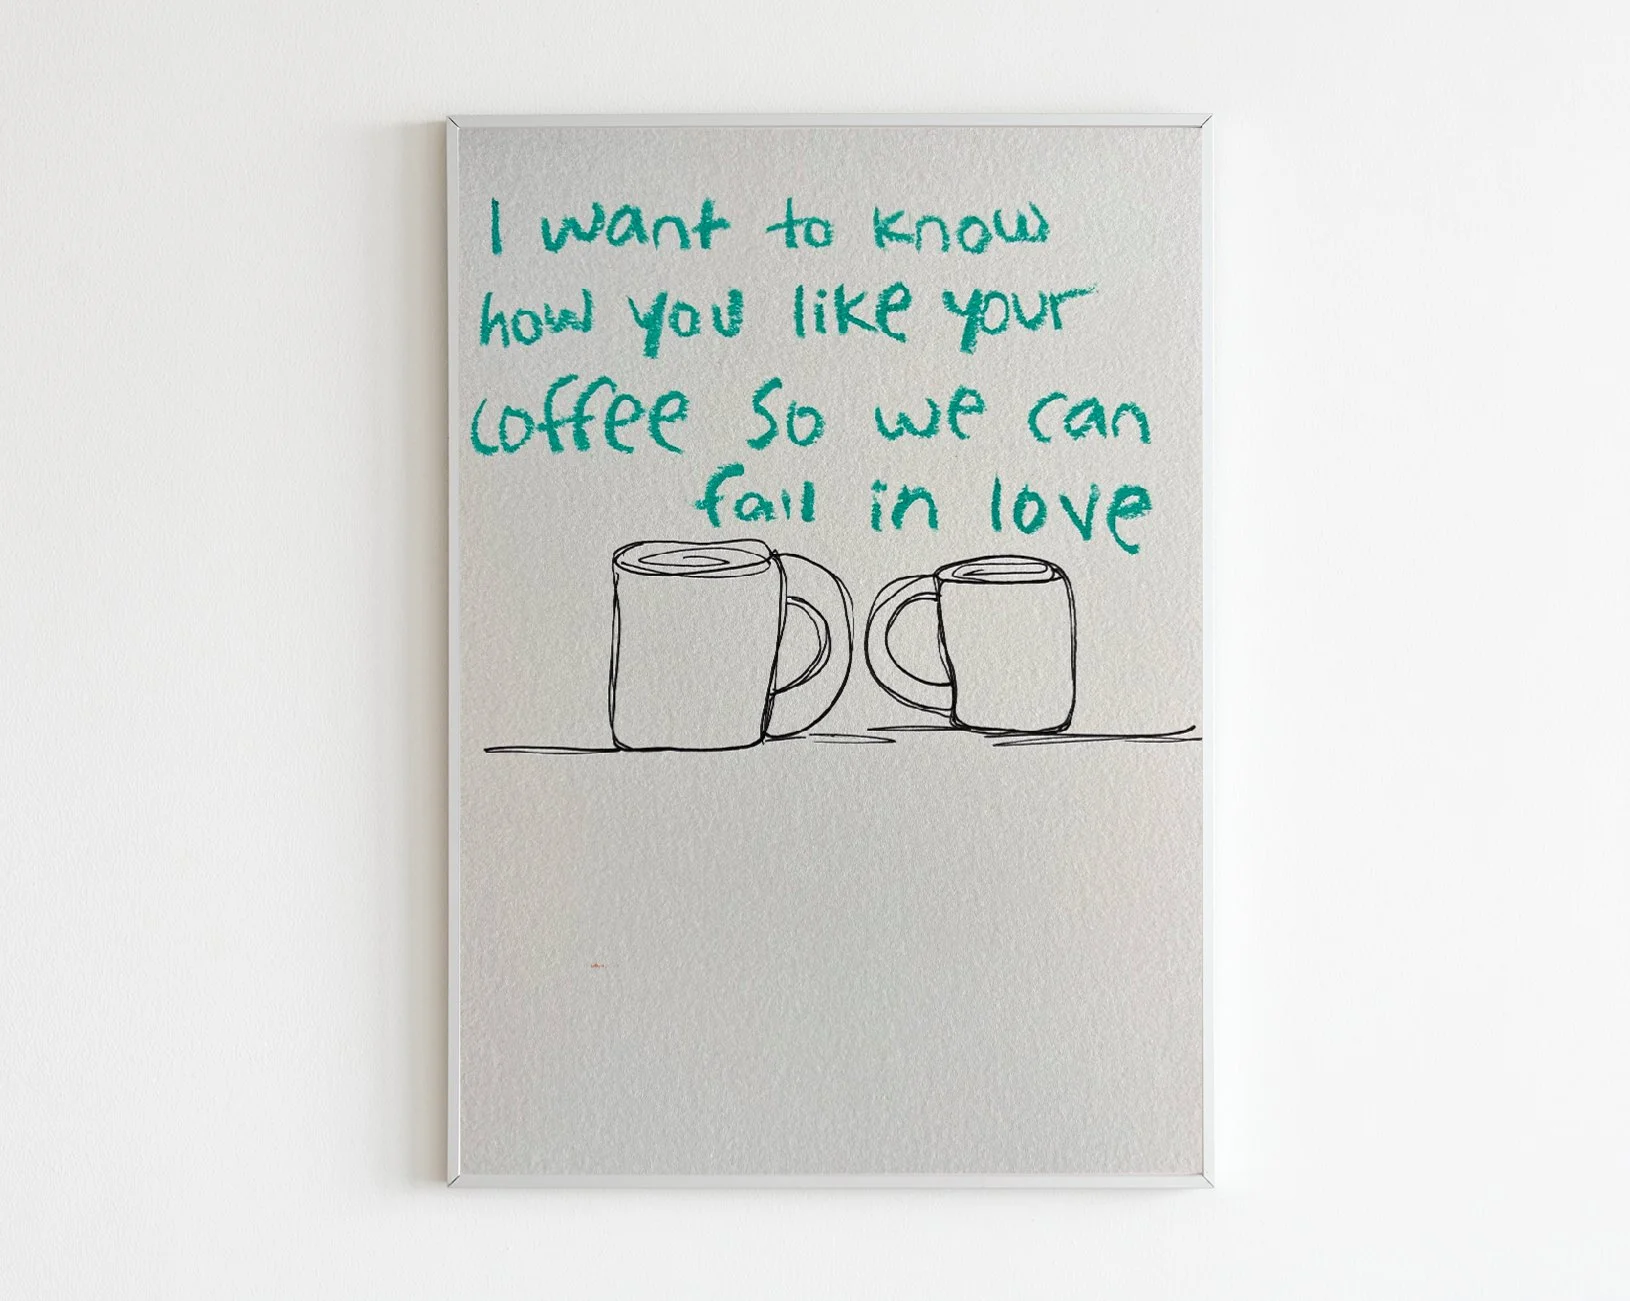 I want to know
how you like your
coffee so we can
fall in love